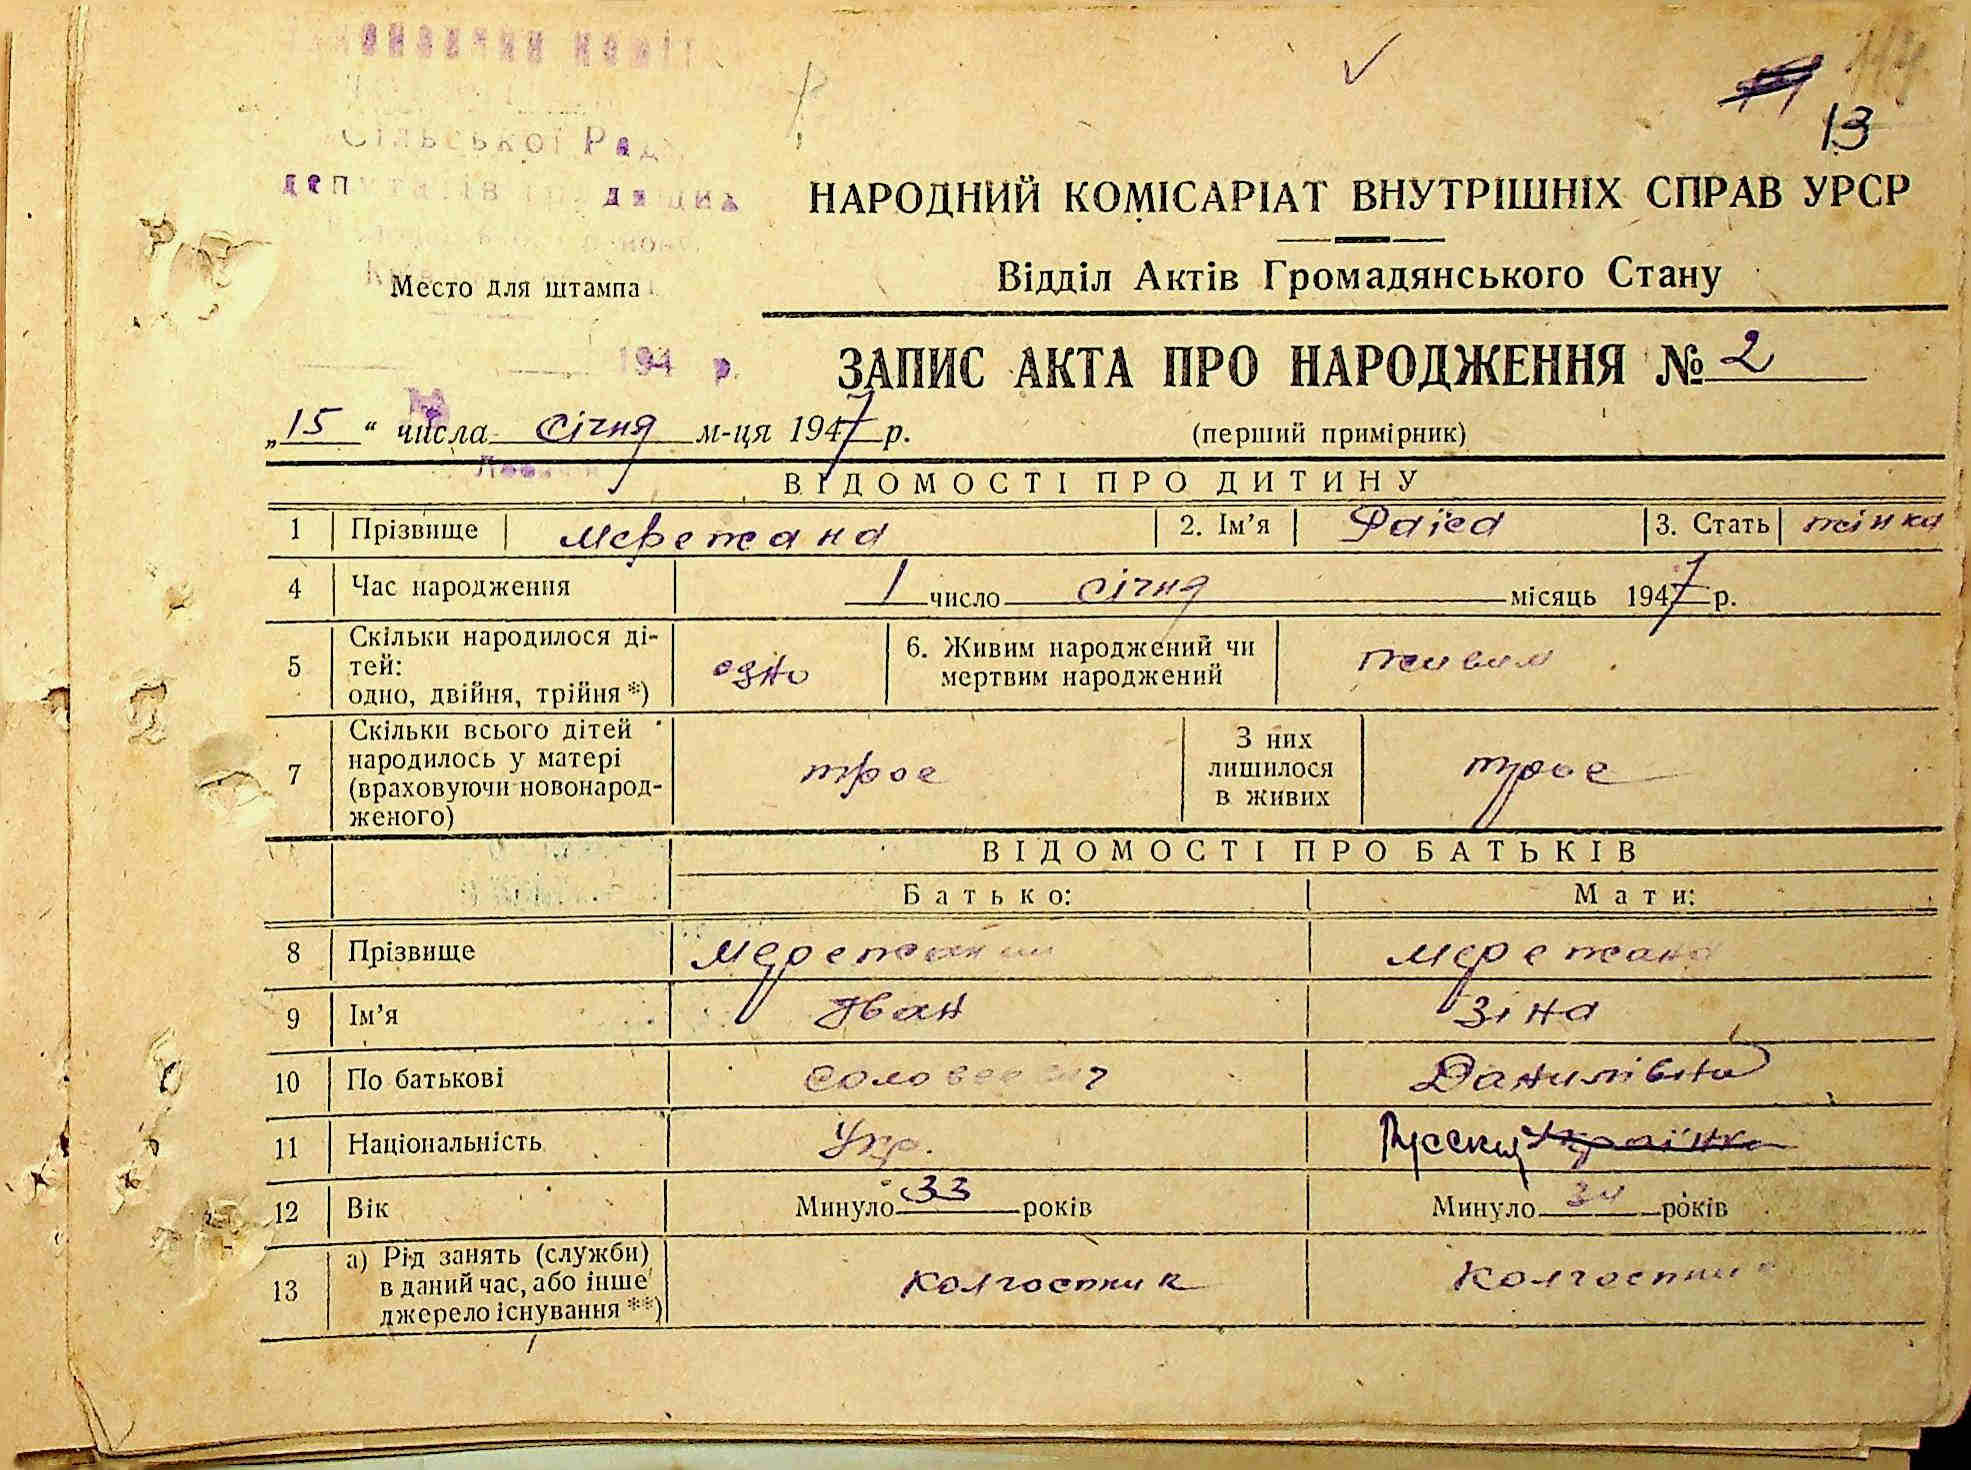 114
13
Сільської Ради
депутатів трудящих
НАРОДНИЙ КОМІСАРІАТ ВНУТРІШНІХ СПРАВ УРСР
Відділ Актів Громадянського Стану
Место для штампа
194 р.
ЗАПИС АКТА ПРО НАРОДЖЕННЯ № 2
„15“ числа січня м-ця 1947 р.
(перший примірник)
ВІДОМОСТІ ПРО ДИТИНУ
1 Прізвище Мережана 2. Ім’я Раїса 3. Стать жінка
4 Час народження 1 число січня місяць 1947 р.
5 Скільки народилося ді-
тей:
одно, двійня, трійня *) одно 6. Живим народжений чи
мертвим народжений живим
7 Скільки всього дітей
народилось у матері
(враховуючи новонарод-
женого) троє З них
лишилося
в живих троє
ВІДОМОСТІ ПРО БАТЬКІВ
Батько: Мати:
8 Прізвище Мережаний Мережана
9 Ім’я Іван Зіна
10 По батькові Данилівна
11 Національність Укр. Русская Українка
12 Вік Минуло 33 років Минуло років
13 а) Рід занять (служби)
в даний час, або інше
джерело існування **) колгоспник колгоспник